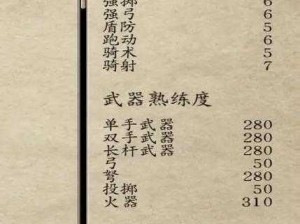 强掷 6
强弓 6
盾防 5
跑动 6
骑术 5
骑射 7
武器熟练度
单手武器 280
双手武器 280
长杆武器 280
弓 50
弩 280
投掷 50
火器 310